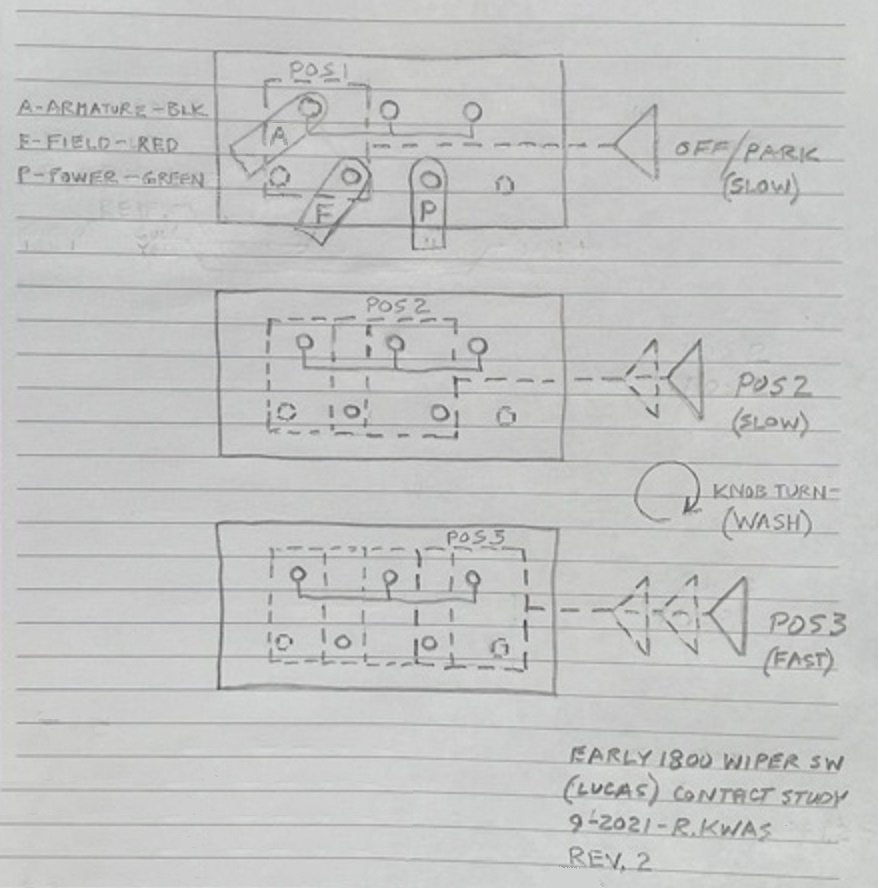 POS 1
A-ARMATURE-BLK
F-FIELD-RED
P-POWER-GREEN
A
F
P
OFF/PARK
(SLOW)
POS 2
POS 2
(SLOW)
KNOB TURN-
(WASH)
POS 3
POS 3
(FAST)
EARLY 1800 WIPER SW
(LUCAS) CONTACT STUDY
9-2021-R.KWAS
REV, 2